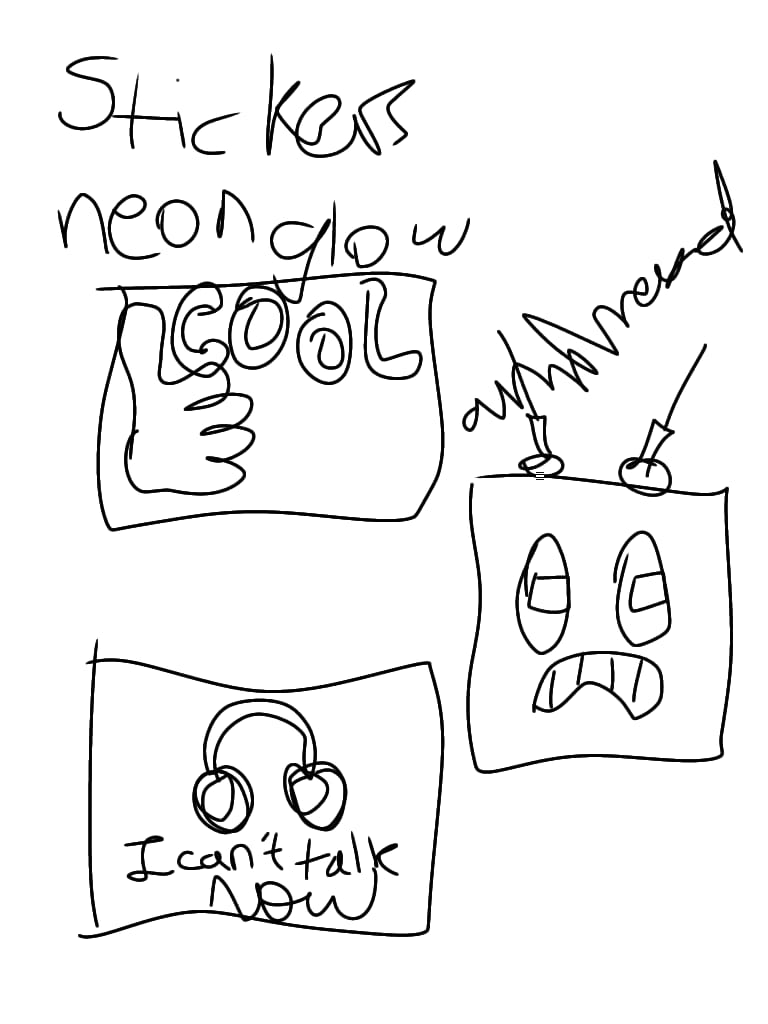 Stickers
neon glow
COOL
I can't talk
NOW